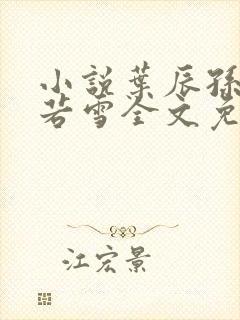 小説葉辰孫
若雪全文免
江宏景